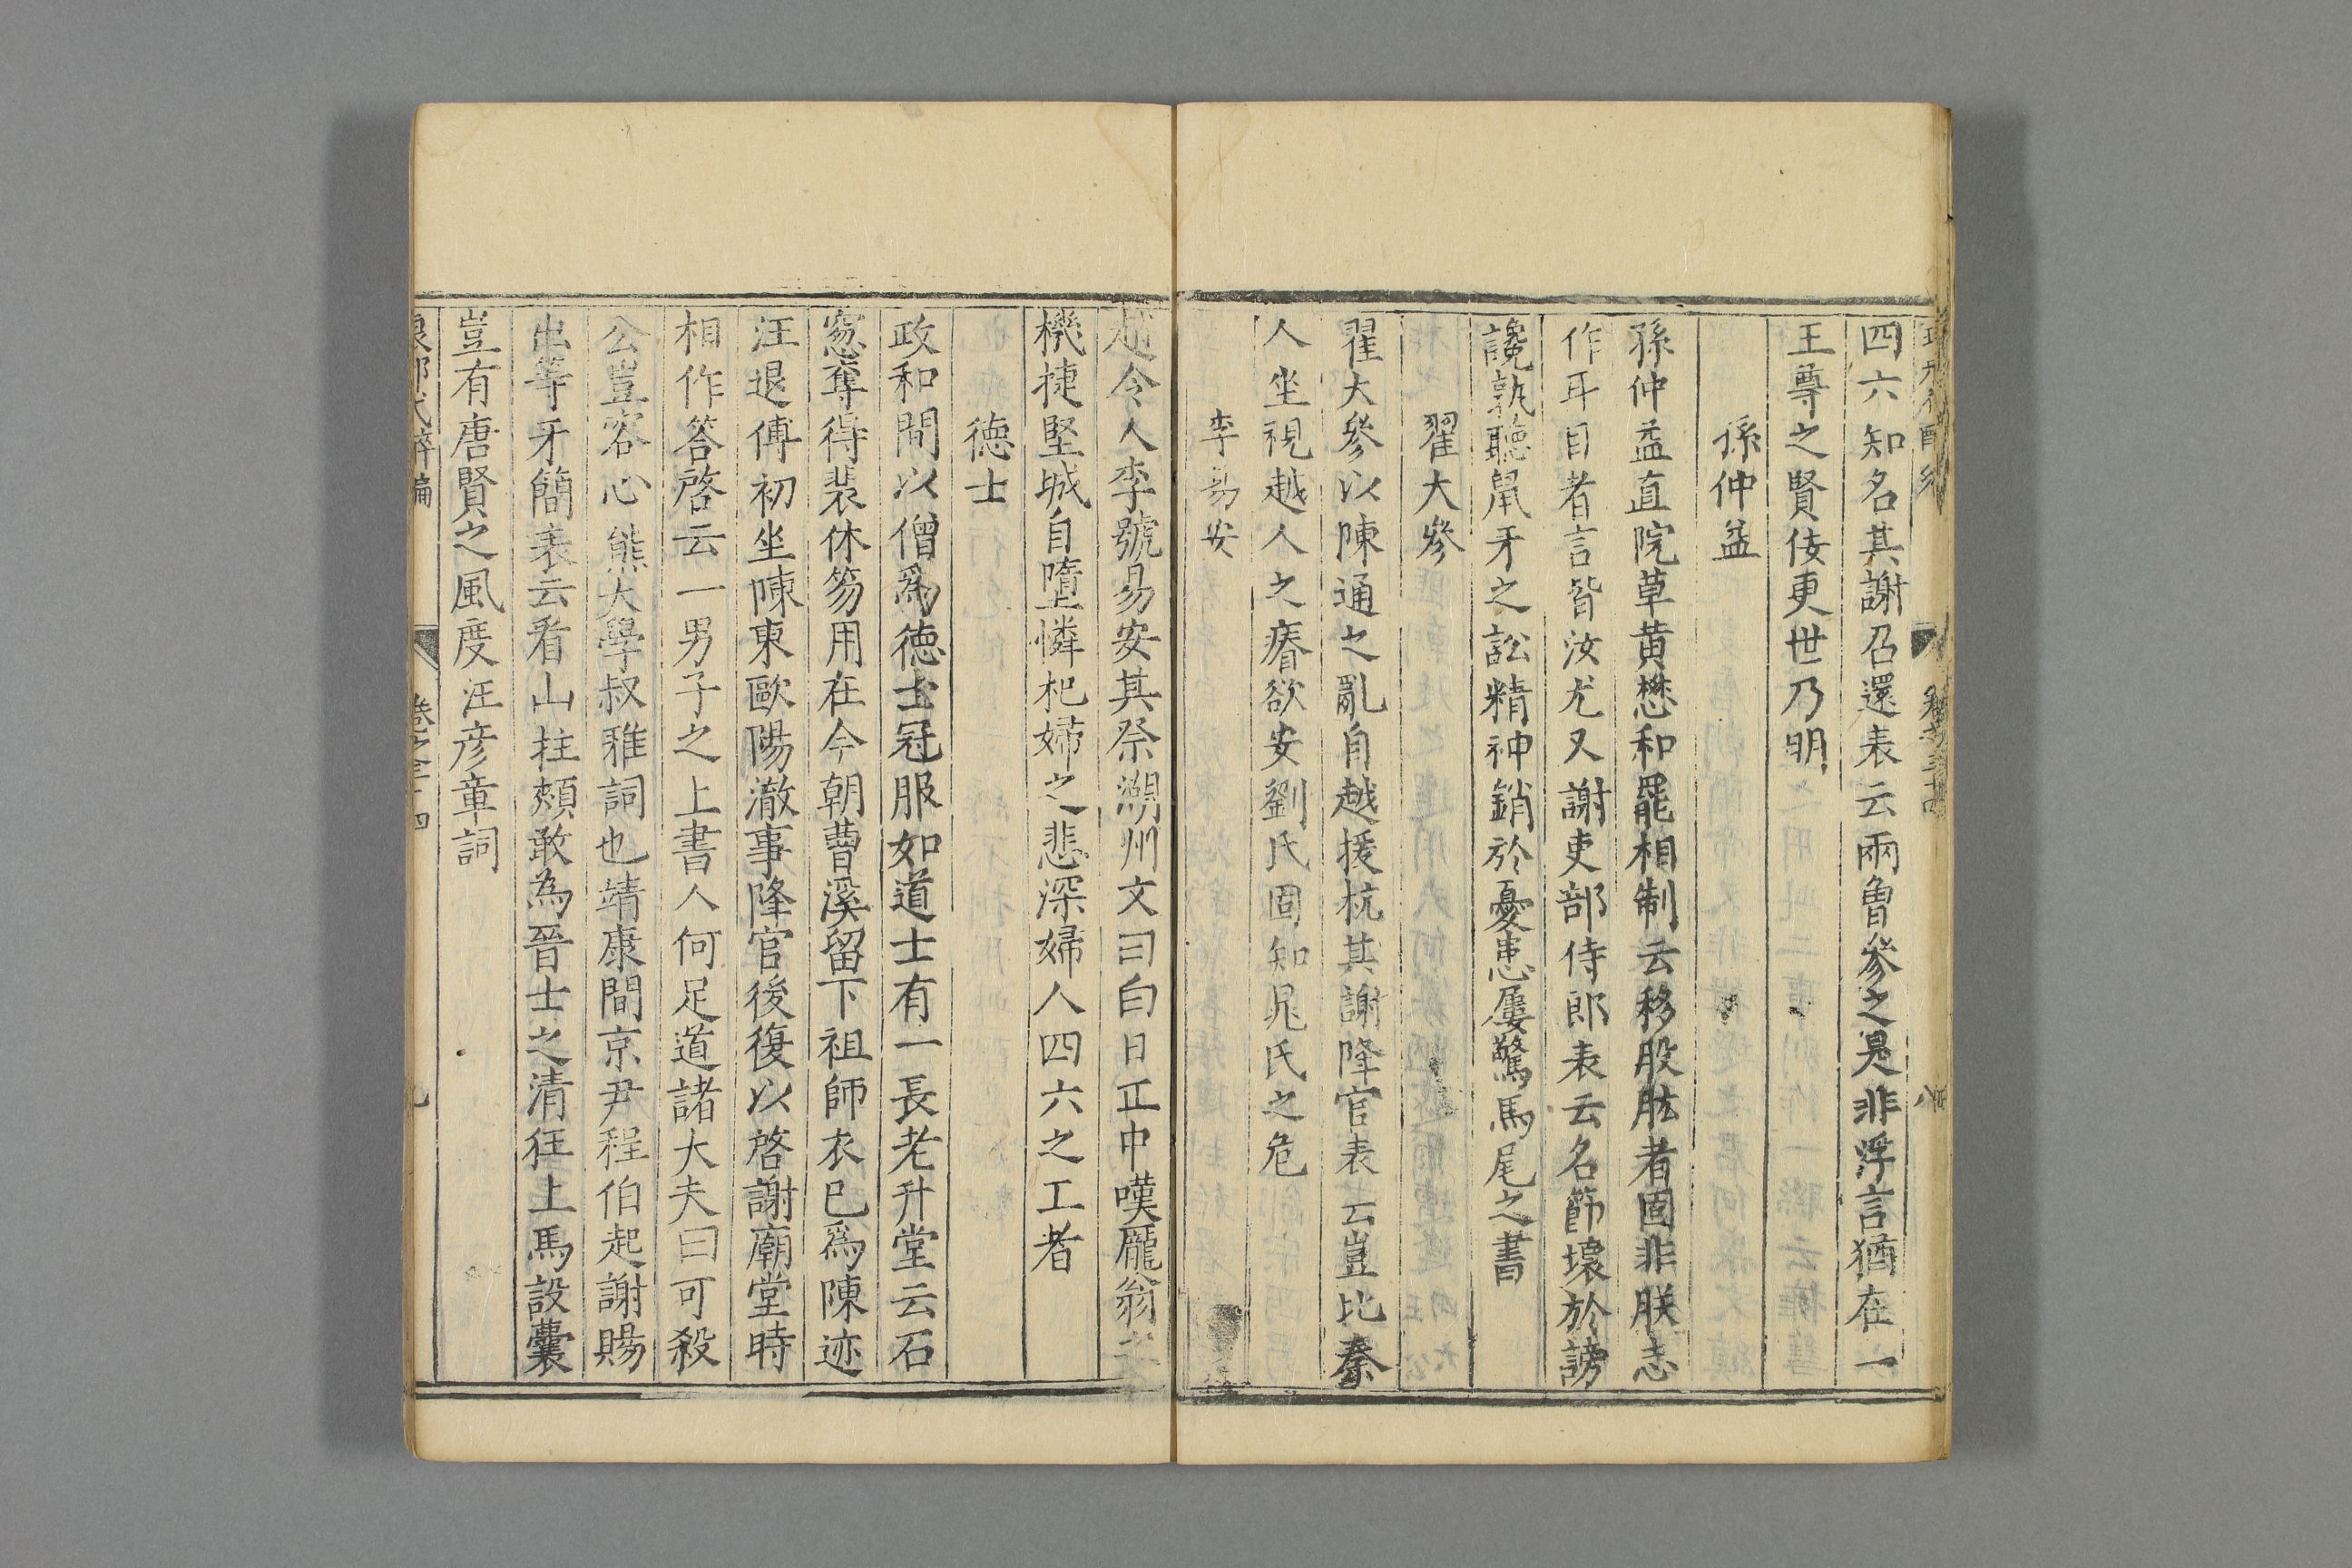 四六知名其謝召還表云兩魯參之是非浮言猶在一
王尊之賢佞更世乃明
孫仲益
孫仲益直院草黄懋和罷相制云移股肱者固非朕志
作耳目者言皆汝尤又謝吏部侍郎表云名節壞於謗
讒孰聽鼠牙之訟精神銷於憂患屢驚馬尾之書
翟大參
翟大參以陳通之亂自越援杭其謝降官表云豈比秦
人坐視越人之瘠欲安劉氏固知晁氏之危
李易安
趙令人李號易安其祭湖州文曰白日正中嘆龐翁之
機捷堅城自墮憐杞婦之悲深婦人四六之工者
徳士
政和間以僧爲徳士冠服如道士有一長老升堂云石
窓奪得裴休笏用在今朝曹溪留下祖師衣巳爲陳迹
汪退傅初坐陳東歐陽澈事降官後復以啓謝廟堂時
相作答啓云一男子之上書人何足道諸大夫曰可殺
公豈容心熊大學叔雅詞也靖康間京尹程伯起謝賜
出等牙簡表云看山拄頰敢為晉士之清狂上馬設囊
豈有唐賢之風度汪彦章詞
卷之三十四